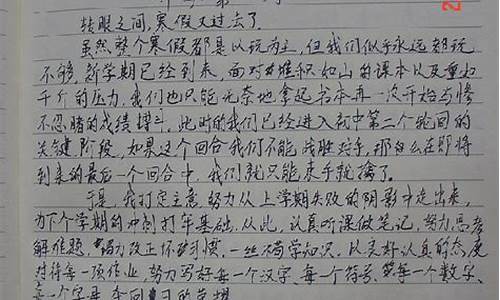 转眼之间,寒假又过去了。
虽然整个寒假都是以玩为主,但我们似乎永远都玩
不够。新学期已经到来,面对堆积如山的课本以及重如
千斤的压力,我们也只能无奈地拿起书本再一次开始与惨
不忍睹的成绩搏斗,此时的我们已经进入初中第二个轮回的
关键阶段,如果这个回合我们不能战胜对手,那么在即将
到来的最后一个回合中,我们就只能束手就擒了。
于是,我打定主意,努力从上学期失败的阴影中走出来,
为下个学期的冲刺打牢基础,从此,认真听课做笔记,努力思考
解难题,努力改正坏习惯,一丝不苟学知识。以良好认真的态度
对待每一项作业,努力写好每一个汉字、每一个符号、每一个数字、
每一个字母